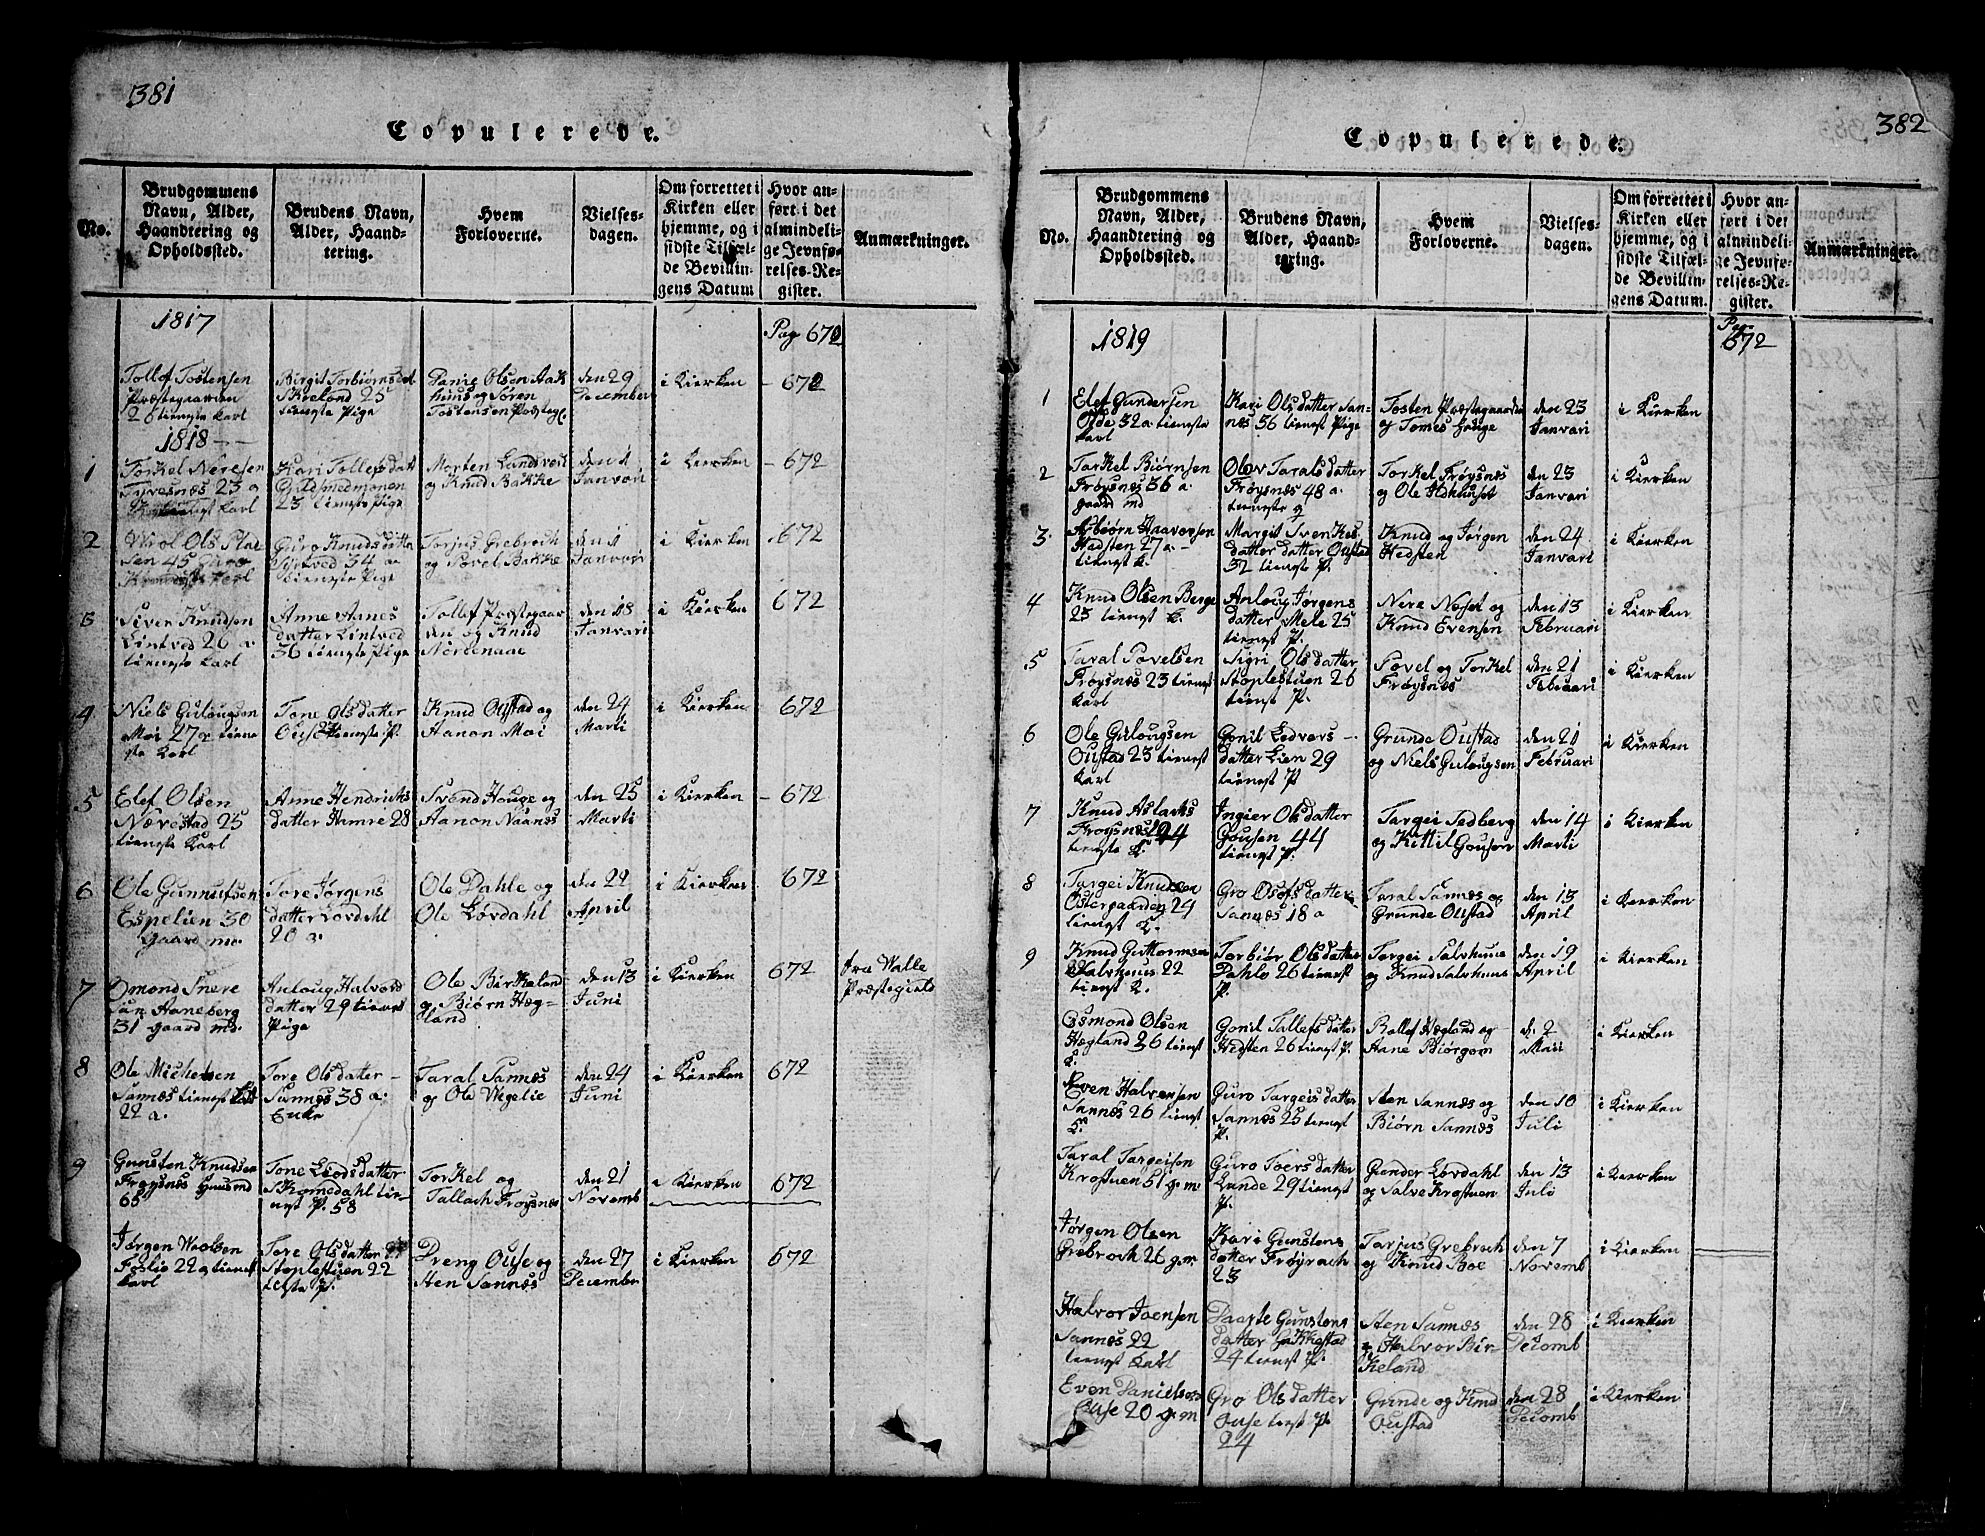 381
Copulerede.
No.
Brudgommens Navn, Alder, Haandtering og Opholdssted.
Brudens Navn, Alder, Haandtering.
Hvem Forloverne.
Vielses-dagen.
Om forrettet i Kirken eller hjemme, og i sidste Tilfælde Bevillingens Datum
Hvor anført i det almindelige Jevnførelses-Register.
Anmærkninger.
1817
Pag 672
Tollef Tostensen Præstegaarden 26 tieneste Karl
Birgit Torbiørnsdat Skreland 25 tieneste Pige
Danie Olsen Aakhuus og Søren Tostensen Præsteg
den 29 December
i Kierken
672
1818
1
Torkel Neresen 23 a Karl
Kari Tollefsdatt 23 tieneste Pige
Morten Landsverk og Knud Bakke
den 1 Janvari
i Kierken
672
2
Ols 45
Guro Knudsdatter 34 aa tieneste Pige
Torjus Grebrock og Povel Bakke
den 1 Janvari
i Kierken
672
3
Siver Knudsen Lintved 26 a tieneste Karl
Anne Aanes datter Lintved 36 tieneste Pige
Tollef Præstegaar den og Knud Nordenaae
den 18 Janvari
i Kierken
672
4
Niels Gulougsen Moi 27 a tiene ste Karl
Tone Olsdatter Ouse tieneste P.
Knud Oustad og Hanon Moi
den 24 Marti
i Kierken
672
5
Elef Olsen Nævestad 25 tieneste Karl
Anne Hendricks datter Hamre 28
Svend Houge og Aanon Naanes
den 25 Marti
i Kierken
672
6
Ole Gunnulfsen Espelien 30 Gaard m.
Tore Jørgens datter Lørdahl 20 a.
Ole Dahle og Ole Lørdahl
den 22 April
i Kierken
672
7
Omond Snere san Haneberg 31 gaard m.
Anloug Halvord datter 29 tienest Pige
Ole Birkeland og Biørn Hægland
den 13 Juni
i Kierken
672
fra Walle Præstegield
8
Ole Michelsen Sannes tienest Karl 22 a.
Tore Olsdatter Sannes 38 a. Enke
Taral Sannes og Ole Wegelie
den 24 Juni
i Kierken
672
9
Gunsten Knudsen Frøysnes Huusmd 65
Tone Liodsdatter Skomedahl tienest P. 58
Torkel og Tallach Frøysnes
den 21 Novemb
i Kierken
672
Jørgen Woelsen Foslie 22 a tienest Karl
Tore Olsdatter Stoplestuen 22 P.
Dreng Ouse og Sten Sannes
den 27 December
i Kierken
672
382
Copulerede.
No.
Brudgommens Navn, Alder, Haandtering og Opholdssted.
Brudens Navn, Alder, Haandtering.
Hvem Forloverne.
Vielses-dagen.
Om forrettet i Kirken eller hjemme, og i sidste Tilfælde Bevillingens Datum.
Hvor anført i det almindelige Jevnførelses-Register.
Anmærkninger.
1819
Pag 672
1
Elef Gundersen 32 a tieneste Karl
Kari Olsdatter Sannes 36 tienest Pige
Tosten Præstegaarden og Tomes Houge
den 23 Janvari
i Kierken
2
Tarkel Biørnsen Frøysnes 36 a. gaard md
Olov Taralsdatter Frøysnes 48 a. tieneste
Torkel Frøysnes og Ole
den 23 Janvari
i Kierken
3
Asbiørn Haavorsen Hedsten 27 a. tienest K.
Margit Svenkes datter datter Oustad 32 tienest P.
Knud og Jørgen Hedsten
den 24 Janvari
i Kierken
4
Knud Olsen Berge 23 tienest K.
Anloug Jørgens datter Mele 25 tienest P.
Nere Neset og Knud Evensen
den 13 Februari
i Kierken
5
Taral Povelsen Frøysnes 23 tienest Karl
Sigri Olsdatter Stoplestuen 26 tienest P.
Povel og Torkel Frøysnes
den 21 Februari
i Kierken
6
Ole Gulougsen Oustad 23 tienest Karl
Gonil Ledvors datter Lien 29 tienest P
Grunde Oustad og Niels Gulougsen
den 21 Februari
i Kierken
7
Knud Aslacks Frøysnes tieneste K.
Ingier Olsdatter Gousen 44 tienest P.
Targei Tedberg og Kittil Gousen
den 14 Marti
i Kierken
8
Targei Knudsen Ostergaarden 24 tienest K.
Gro Osofsdatter Sannes 18 a
Taral Sannes og Grunde Oustad
den 13 April
i Kierken
9
Knud Guttormsen Salvhuus 22 tienest K.
Torbiør Olsdatter Dahle 26 tienest P.
Torgei Salvhuus og Knud Salvhuus
den 19 April
i Kierken
Osmond Olsen Hægland 26 tienest K.
Gonil Tallefsdatter Hedsten 26 tienest P.
Rollef Hægland og Aane Biørgom
d. 2 Maii
i Kierken
Even Halvorsen Sannes 26 tienest K.
Guro Targeisdatter Sannes 25 tienest P.
Sten Sannes og Biørn Sannes
den 10 Juli
i Kierken
Taral Targeisen Krostuen 51 g. m
Guro Toers datter Lunde 29 tienest P.
Gunder Lørdahl og Salve Krostuen
den 13 Juli
i Kierken
Jørgen Olsen Grebrock 26 g. m
Kari Gunstens datter Frøyrach 23
Tarjus Grebroch og Knud Boe
den 7 Novemb
i Kierken
Halvor Joensen Sannes 22 tienest Karl
Daarte Gunstens datter Hakkestad 24 tienest P.
Sten Sannes og Halvor Birkeland
den 28 Decemb
i Kierken
Even Danielsen Ouse 20 g. m
Gro Olsdatter Ouse tienst P 24
Grunde og Knud Oustad
den 28 Decemb
i Kierken